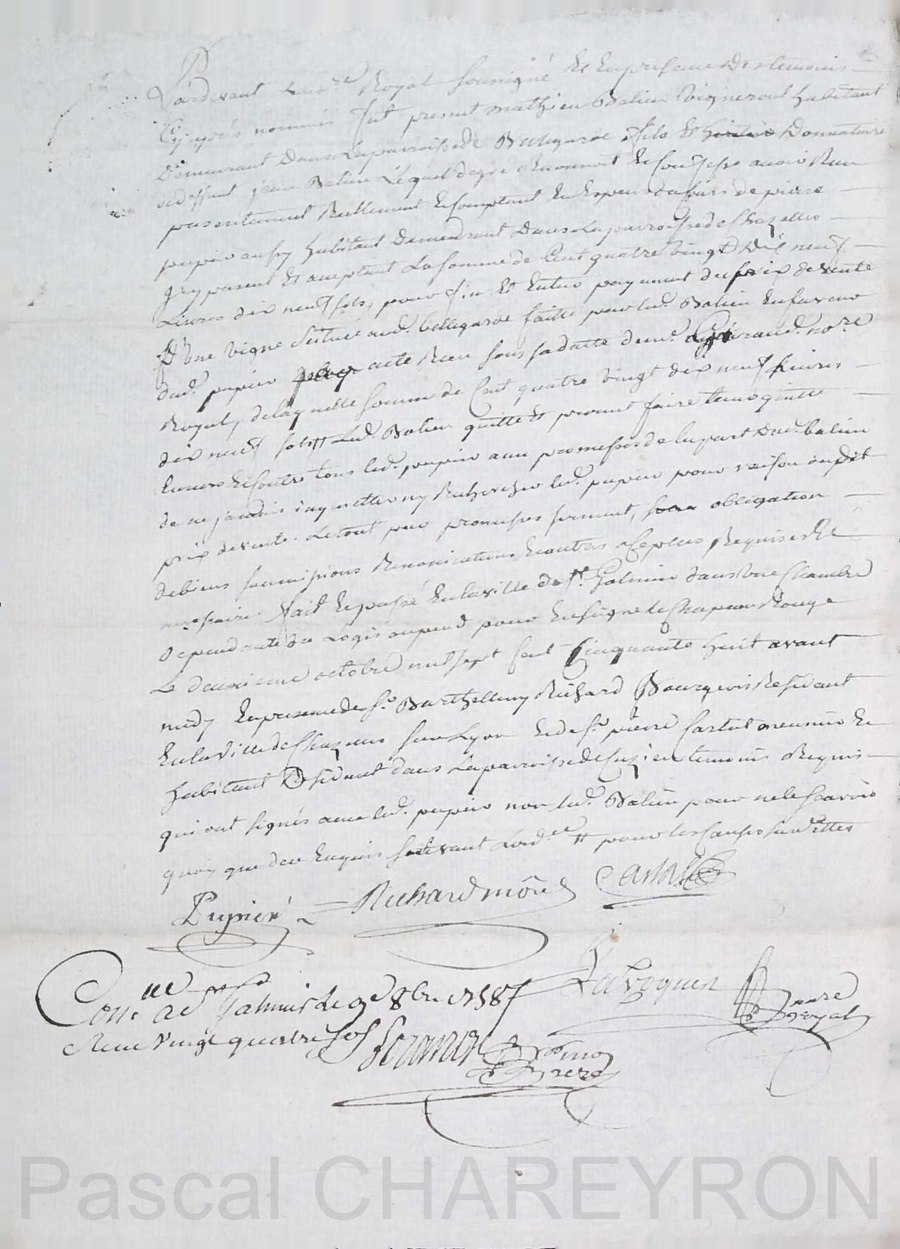 Pardevant Le no.re Royal soussigné Et En presence Des temoins
Cy apres nommés fut present mathieu Balien Vigneront habitant
Demeurant Dans La parroisse de Bellegarde fils Et Donnataire
de deffunt jean Balien Lequel de gré Reconnoit Et Confesse avoir Reçu
presentement Reellement Et Comptant En Especes de Cours de pierre
pupier aussy habitant Demeurant Dans La parroisse de Chazelles
icy present Et acceptant La somme de Cent quatre vingt Dix neuf
Livres dix neuf sols, pour fin Et Entier payement du prix de vente
D'une vigne scituée aud. bellegarde faitte par led. Balien En faveur
dud. pupier par acte Reçu sous sa datte de me. no.re
Royal, de laquelle somme de Cent quatre vingt dix neuf Livres
dix neuf sols Led. Balien quitte Et promet faire tenir quitte
Envers Et Contre tous led. pupier avec promesses de la part Dud. balien
de ne jamais inquietter ny Rechercher led. pupier pour raison dudit
prix de vente. Le tout par promesses serment, obligation
de biens soumissions Renonciations Et autres Clauses Requises Et
necessaires fait Et passé En la ville de St. Galmier dans une Chambre
dependante du Logis ou pend pour Enseigne le Chapeau Rouge
Le deuxieme octobre mil sept Cent Cinquante huit avant
midy En presence de Sr. Barthellemy Richard Bourgeois Residant
En la Ville de Chazelles sur Lyon Et de Sr. pierre Cartal meunier Et
habitant Residant dans La parroisse de Cuzieu temoins Requis
qui ont signés avec led. pupier non led. Balien pour ne le sçavoir
quoy que de ce Enquis suivant Lord.ce pour les Causes susdittes
Pupier Richard Cartal
no.re
royal
Con.lé a St Galmier le 9e 8bre 1758
Reçu vingt quatre sols